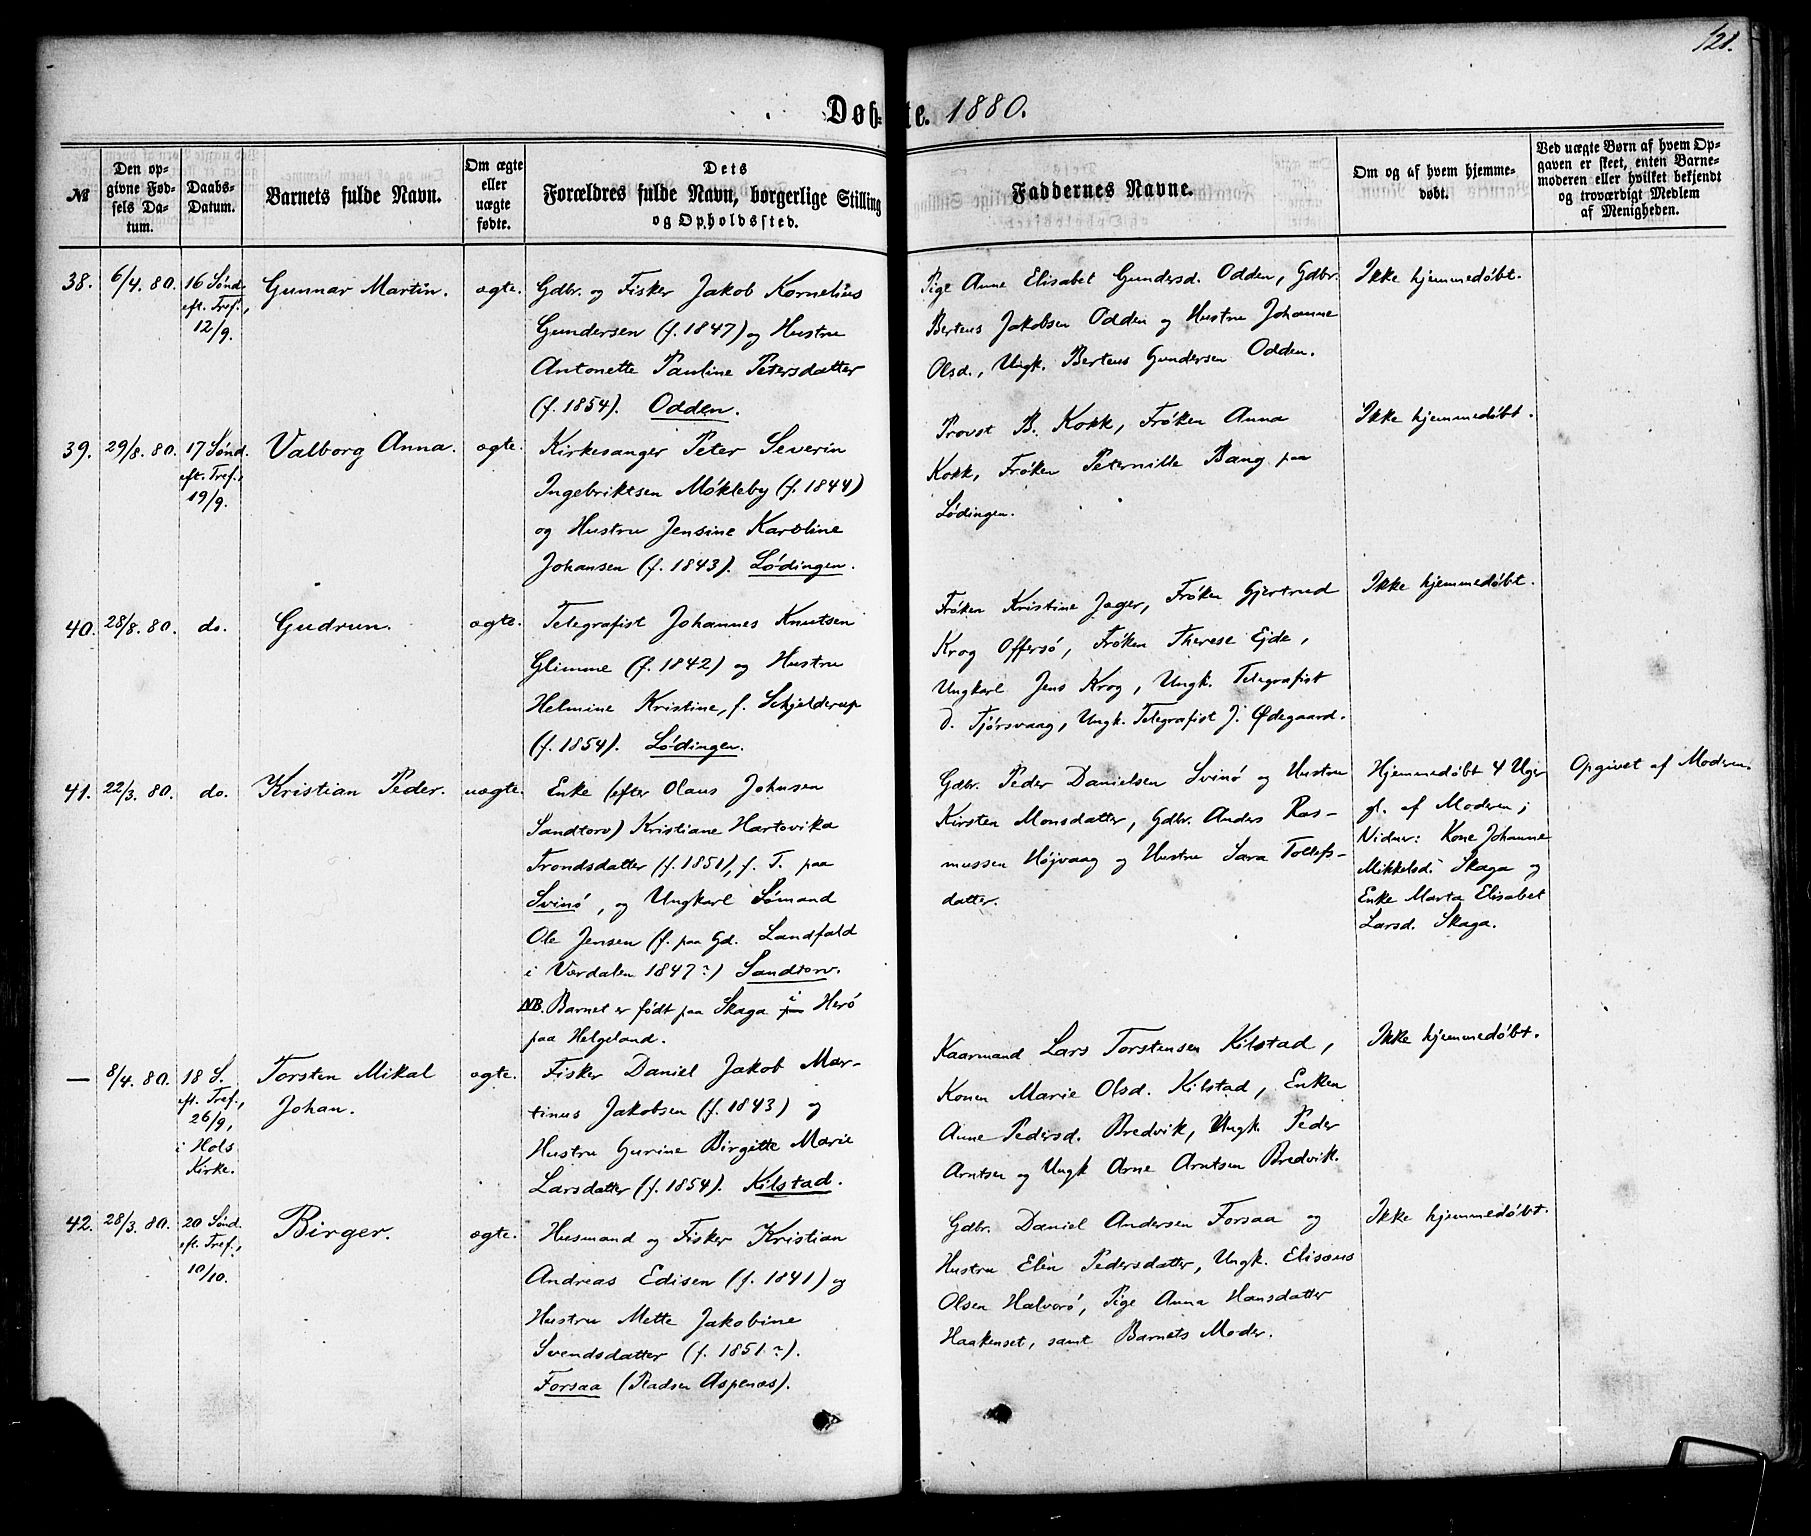 121.
Døbte. 1880.
№
Den opgivne Fødsels Datum.
Daabs-Datum.
Barnets fulde Navn.
Om ægte eller uægte født.
Dets Forældres fulde Navn, borgerlige Stilling og Opholdssted.
Faddernes Navne.
Om og af hvem hjemmedøbt.
Ved uægte Børn af hvem Opgaven er skeet, enten Barnemoderen eller hvilket bekjendt og troværdigt Medlem af Menigheden.
38. 6/4. 80. 16 Sønd. eft. Tref., 12/9.
Gunnar Martin.
ægte.
Gdbr. og Fisker Jakob Kornelius
Gundersen (f. 1847) og Hustru
Antonette Pauline Petersdatter
(f. 1854). Odden.
Pige Anne Elisabet Gundersd. Odden, Gdbr.
Berteus Jakobsen Odden og Hustru Johanne
Olsd., Ungk. Berteus Gundersen Odden.
Ikke hjemmedøbt.
39. 29/8. 80. 17 Sønd. eft. Tref., 19/9.
Valborg Anna.
ægte.
Kirkesanger Peter Severin
Ingebriktsen Møkleby (f. 1844)
og Hustru Jensine Karoline
Johansen (f. 1843). Lødingen.
Provst B. Kokk, Frøken Anna
Kokk, Frøken Peternille Bang paa
Lødingen.
Ikke hjemmedøbt.
40. 28/8. 80. do.
Gudrun.
ægte.
Telegrafist Johannes Knutsen
Glimme (f. 1842) og Hustru
Helmine Kristine, f. Schjelderup
(f. 1854). Lødingen.
Frøken Kristine Jæger, Frøken Gjertrud
Krog Offersø, Frøken Therese Ejde,
Ungkarl Jens Krog, Ungk. Telegrafist
D. Tjørsvaag, Ungk. Telegrafist J. Ødegaard.
Ikke hjemmedøbt.
41. 22/3. 80. do.
Kristian Peder.
uægte.
Enke (efter Olaus Johnsen
Sandtorv) Kristiane Hartvika
Trondsdatter (f. 1851), f. T. paa
Svinø, og Ungkarl Sømand
Ole Jensen (f. paa Gd. Landfald
i Værdalen 1847?) Sandtorv.
NB. Barnet er født paa Skaga i Herø
paa Helgeland.
Gdbr. Peder Danielsen Svinø og Hustru
Kirsten Monsdatter, Gdbr. Anders Ras-
mussen Højvaag og Hustru Sara Tollefs-
datter.
Hjemmedøbt 4 Uger
gl. af Moderen;
Vidner: Kone Johanne
Mikkelsd. Skaga og
Enke Marta Elisabet
Larsd. Skaga.
Opgivet af Moderen.
— 8/4. 80. 18 S. eft. Tref., 26/9, i Hols Kirke.
Torsten Mikal
Johan.
ægte.
Fisker Daniel Jakob Mar-
tinus Jakobsen (f. 1843) og
Hustru Gurine Birgitte Marie
Larsdatter (f. 1854). Kilstad.
Kaarmand Lars Torstensen Kilstad,
Konen Marie Olsd. Kilstad, Enken
Anne Pedersd. Bredvik, Ungk. Peder
Arntsen og Ungk Arne Arntsen Bredvik.
Ikke hjemmedøbt.
42. 28/3. 80. 20 Sønd. eft. Tref., 10/10.
Birger.
ægte.
Husmand og Fisker Kristian
Andreas Edisen (f. 1841) og
Hustru Mette Jakobine
Svendsdatter (f. 1851?).
Forsaa (Pladsen Aspenæs).
Gdbr. Daniel Andersen Forsaa og
Hustru Elen Pedersdatter, Ungk. Elisæus
Olsen Halvorø, Pige Anna Hansdatter
Haakenset, samt Barnets Moder.
Ikke hjemmedøbt.